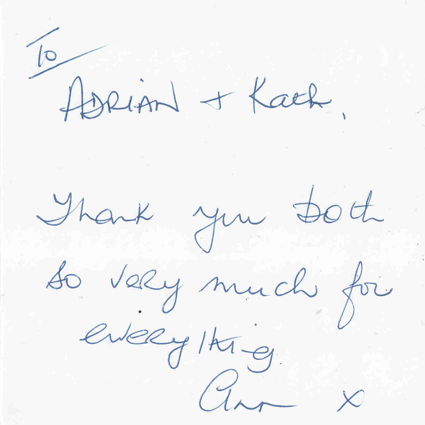 To
ADRIAN + Kath,
Thank you both
so very much for
everything.
Ann x